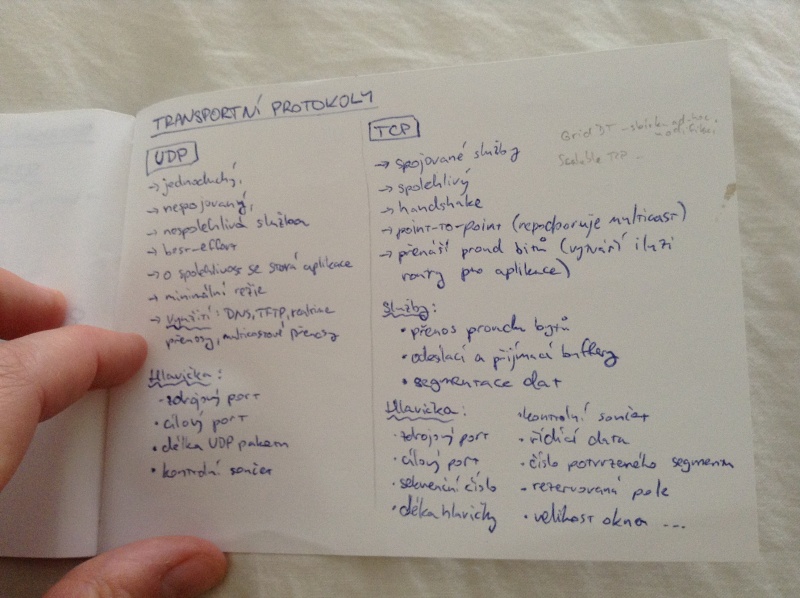 TRANSPORTNÍ PROTOKOLY
UDP
→ jednoduchý,
→ nepojovaný,
→ nespolehlivá služba
→ best-effort
→ o spolehlivost se stará aplikace
→ minimální režie
→ Využití: DNS, TFTP, realtime
přenosy, multicastové přenosy
Hlavička:
- zdrojový port
• cílový port
• délka UDP paketu
• kontrolní součet
TCP
→ spojované služby
→ spolehlivý
→ handshake
→ point-to-point (nepodporuje multicast)
→ přenáší proud bitů (vytváří iluzi
roury pro aplikace)
Služby:
• přenos proudu bytů
• odesílací a přijímací buffery
• segmentace dat
Hlavička:
• zdrojový port
• cílový port
• sekvenční číslo
• délka hlavičky
• kontrolní součet
• řídící data
• číslo potvrzeného segmentu
• rezervovaná pole
• velikost okna ...
GridDT - sbírka ad-hoc
Scalable TCP -